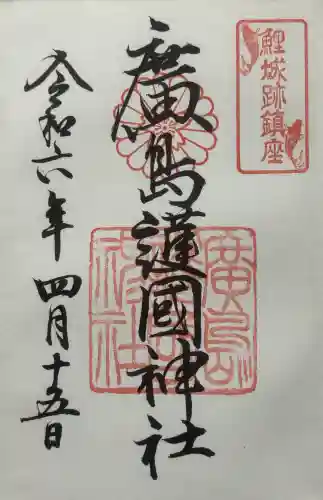 鯉城跡鎮座
廣島護國神社
令和六年四月十五日
廣島護國神社